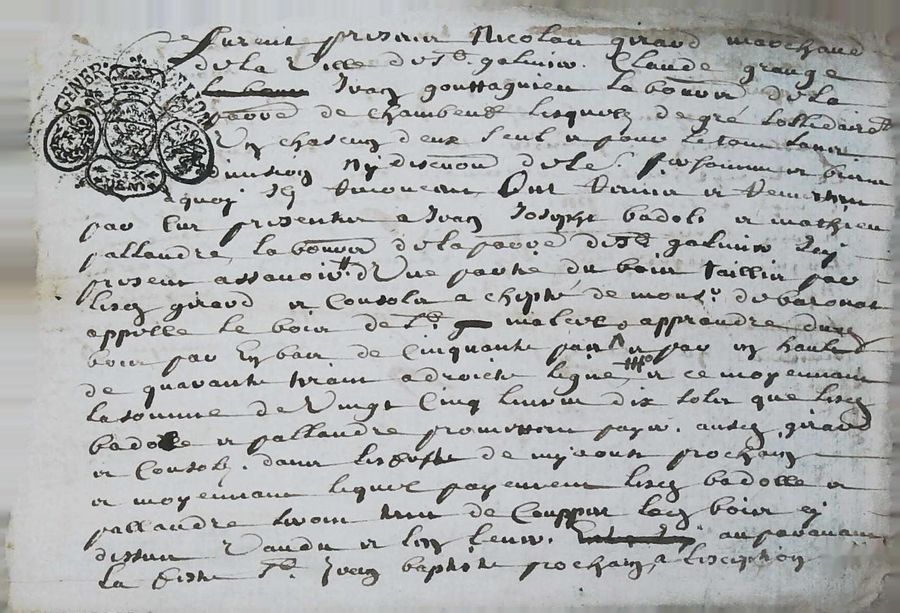 Furent presens Nicolas girard marchand
de la Ville de St. galmier. Claude grange
Jean gouttagnieu laboureur de la
parre de chambeuf lesquels de gré sollidairet
Un chascun deux seul et pour le tout sans
division Ny discution
aquoy Ils renoncent Ont Vendu et Vendent
par Ces presentes a Jean Joseph badol et mathieu
pallandre laboureur de la parre de St. galmier Icy
present assavoir Une partie du bois taillis par
lesd girard et Consols achepté de monsr. de baronat
appellé le bois de apprandre dud
bois par En bas de Cinquante pas et par En hault
de quarante trois a droicte ligne et ce moyennant
la somme de Vingt Cinq livres dix solz que lesd
badolle et pallandre promettent payer ausd girard
et Consols dans les festes de my aoust prochain
et moyennant lequel payement lesd badolle et
pallandre seront tenus de Coupper led bois cy
dessus Vandu et auparavant
la feste St. Jean baptiste prochain a lexception
GENER
SIX
DENI